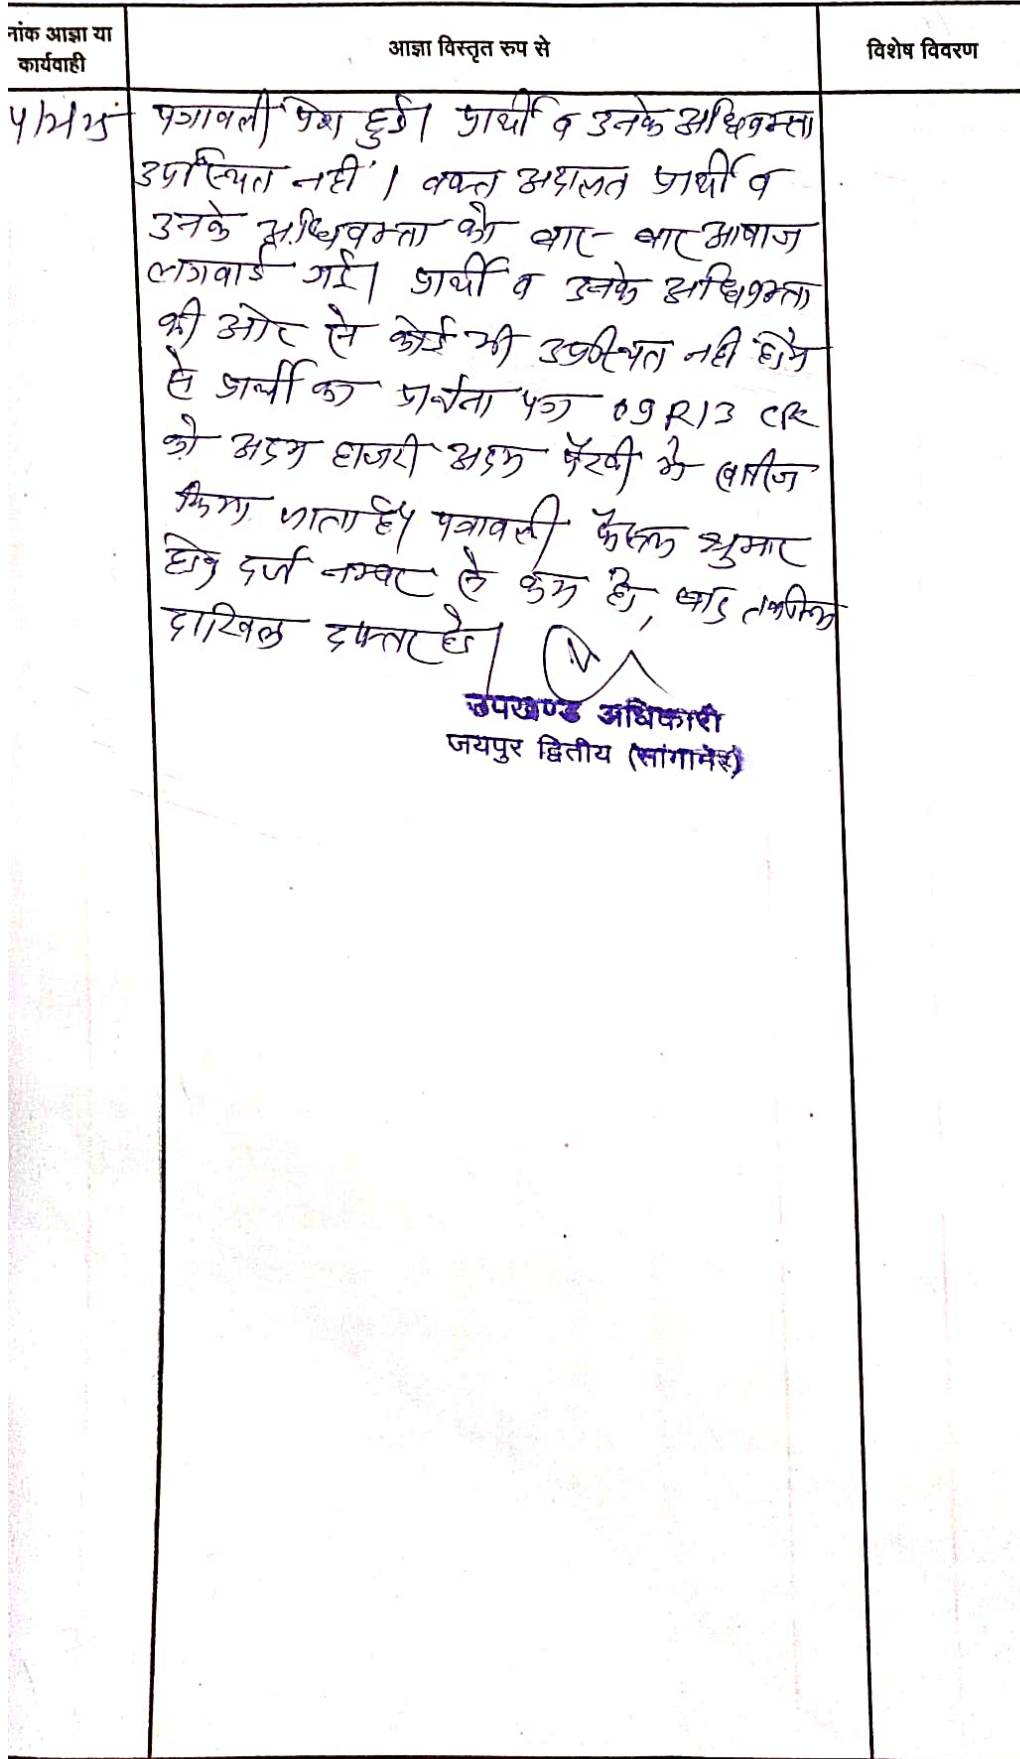 नांक आज्ञा या
कार्यवाही
आज्ञा विस्तृत रुप से
विशेष विवरण
पत्रावली पेश हुई। प्रार्थी व उनके अधिवक्ता
उपस्थित नहीं। वक्त अदालत प्रार्थी व
उनके अधिवक्ता को बार-बार आवाज
लगवाई गई। प्रार्थी व उनके अधिवक्ता
की ओर से कोई भी उपस्थित नही होने
से प्रार्थी का प्रार्थना पत्र 09 R13 CPC
को अदम हाजरी अदम पैरवी मे खारीज
किया जाता है। पत्रावली फैसल शुमार
होकर दर्ज नम्बर से कम हो, बाद तकमील
दाखिल दफ्तर हो।
उपखण्ड अधिकारी
जयपुर द्वितीय (सांगानेर)